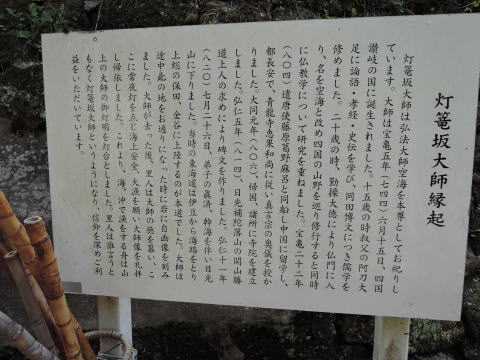 灯篭坂大師縁起
灯篭坂大師は弘法大師空海を本尊としてお祀りし
ています。大師は宝亀五年(七七四)六月十五日、四国
讃岐の国に誕生されました。十五歳の時叔父の阿刀大
足に論語・孝経・史伝を学び、岡田博文につき儒学を
修めました。二十歳の時、勤操大徳により仏門に入
り、名を空海と改め四国の山野を巡り修行すると同時
に仏教学について研究を重ねました。宝亀二十二年
(八〇四)遣唐使藤原葛野麻呂と同船し中国に留学し、
都長安で、青龍寺恵果和尚に従い真言宗の奥儀を授か
りました。大同元年(八〇六)、帰国、諸所に寺院を建立
しました。弘仁五年(八一四)、日光補陀落山の開山勝
道上人の求めにより碑文を作りました。弘仁十一年
(八二〇)七月二十六日、弟子の真済、幹海を伴い日光
山に下りました。当時の東海道は伊豆から海路をとり
上総の保田、金谷に上陸するのが本道でした。大師は
途中此の地をお通りになった時に岩に自画像を刻み
ました。大師が去った後、里人は大師の徳を慕い、こ
こに常夜灯を点じ海上安全、大漁を願い大師像を礼拝
し帰依しました。これより、海、沖で漁をする舟は山
上の大師の御灯明を灯台としました。里人は誰言うと
もなく灯篭坂大師というようになり、信仰を深めご利
益をいただいています。